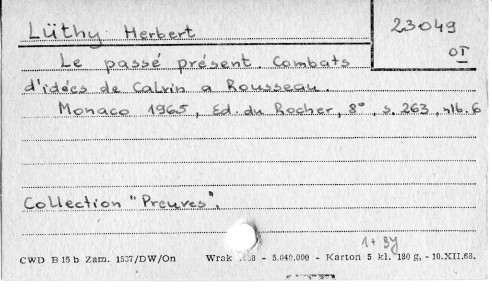 Lüthy Herbert
23049
OI
Le passé présent. Combats
d'idées de Calvin a Rousseau.
Monaco 1965, Ed. du Rocher, 8°, s. 263, nlb. 6
Collection "Preuves".
CWD B 15 b Zam. 1537/DW/On Wrak - 5.040.000 - Karton 5 kl. 180 g, - 10.XII.68.